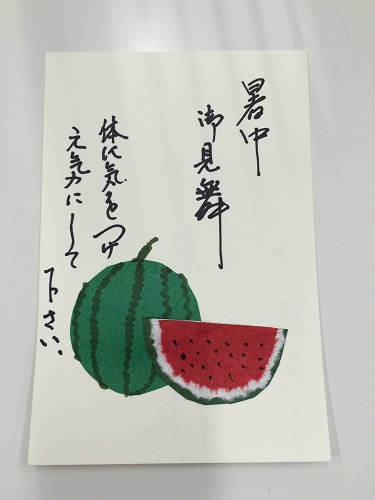 暑中
御見舞
体に気をつけ
元気力にして
下さい、